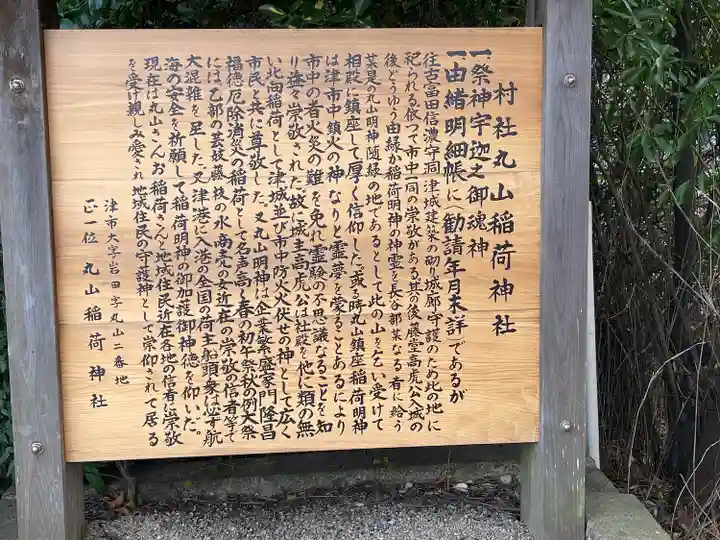 村社丸山稲荷神社
一祭神宇迦之御魂神
一由緒明細帳に勧請年月未詳であるが
往古富田信濃守洞津城建築の砌り城廓守護のため此の地に
祀られる依つて市中一同の崇敬がある其の後藤堂高虎公入城の
後どうゆう由縁か稲荷明神の神霊を長谷部某なる者に給う
某是の丸山明神随縁の地であるとして此の山を乞い受けて
相殿に鎮座して厚く信仰した或る時丸山鎮座稲荷明神
は津市中鎮火の神なりと霊夢を蒙ることあるにより
市中の者火災の難を免れ霊験の不思議なることを知
り益々崇敬された故に城主高虎公は社殿を他に類の無
い北向稲荷として津城並び市中防火火伏せの神として広く
市民と共に尊敬した又丸山明神は企業繁盛家門隆昌
福徳厄除消災の稲荷として名高く春の初午祭秋の例大祭
には乙部の芸妓藤枝の水商売の女近在の崇敬の信者等で
大混雑を呈した又津港に入港の全国の荷主船頭衆は必ず航
海の安全を祈願して稲荷明神の御加護御神徳を仰いだ。
現在は丸山さんお稲荷さんと地域住民近在各地の信者に崇敬
を受け親しみ愛され地域住民の守護神として崇仰されて居る
津市大字岩田字丸山二番地
正一位 丸山稲荷神社